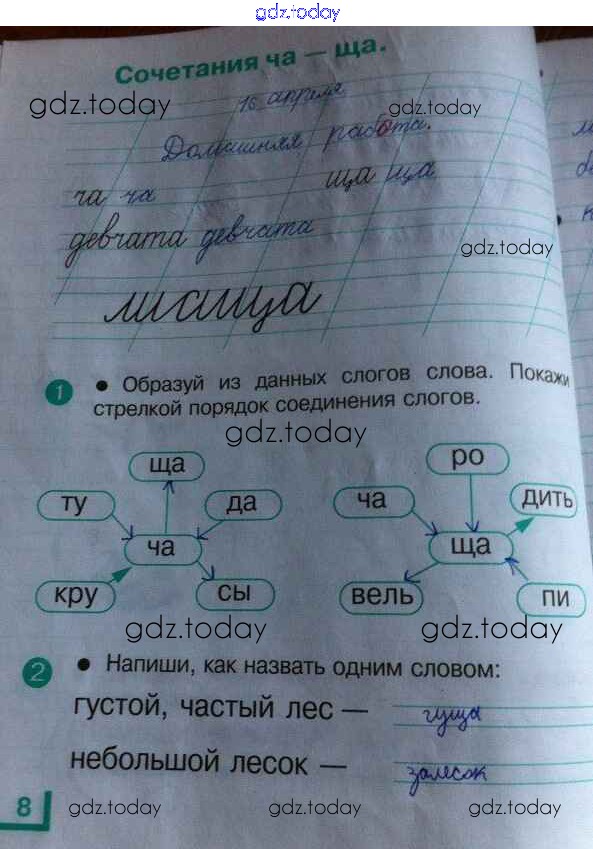 gdz.today
Сочетания ча — ща.
gdz.today
16 апреля
gdz.today
Домашняя работа.
ча ча ща ща
девчата девчата
gdz.today
1 • Образуй из данных слогов слова. Покажи
стрелкой порядок соединения слогов.
gdz.today
ща
ту да
ча
кру сы
ро
ча дить
ща
вель пи
gdz.today gdz.today
2 • Напиши, как назвать одним словом:
густой, частый лес — гуща
небольшой лесок — залесок
8 gdz.today gdz.today gdz.today